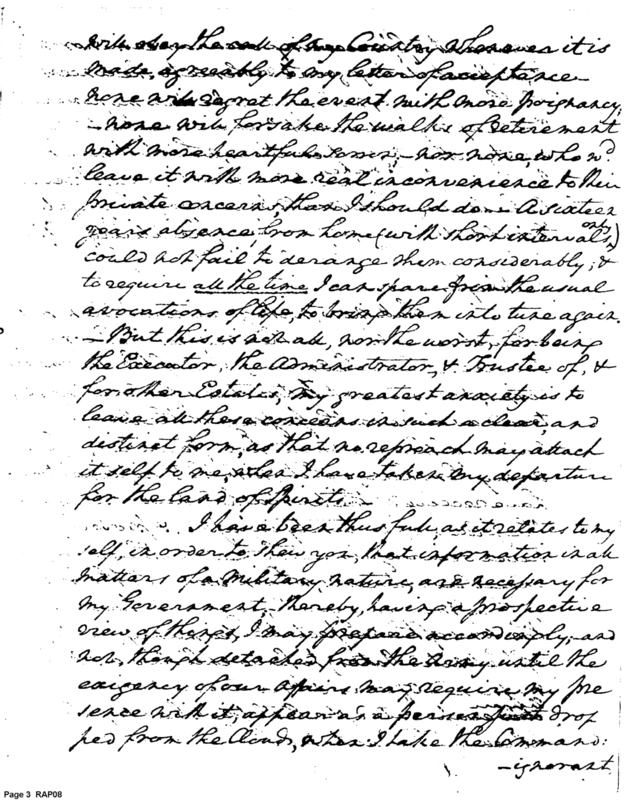 will obey the call of my Country whenever it is
made, agreeably to my letter of acceptance –
none will regret the event with more poignancy;
– none will forsake the walks of retirement
with more heartfelt sorrow, – nor none, who wd
leave it with more real inconvenience to their
private concerns, than I should do. – A sixteen
years absence from home (with short intervals only)
could not fail to derange them considerably; &
to require all the time I can spare from the usual
avocations of life, to bring them into tune again.
– But this is not all, nor the worst, for being
the Executor, the Administrator, & Trustee of, &
for other Estates, my greatest anxiety is to
leave all these concerns in such a clear, and
distinct form, as that no reproach may attach
itself to me, when I have taken my departure
for the land of Spirits. –
I have been thus full, as it relates to my
self, in order to shew you, that information in all
matters of a Military nature, are necessary for
my Government, thereby, having a prospective
view of things, I may prepare accordingly; and
not, though detached from the Army until the
exigency of our Affairs may require my pre
sence with it, appear as a person just drop
ped from the Clouds, when I take the Command:
– ignorant
Page 3 RAP08